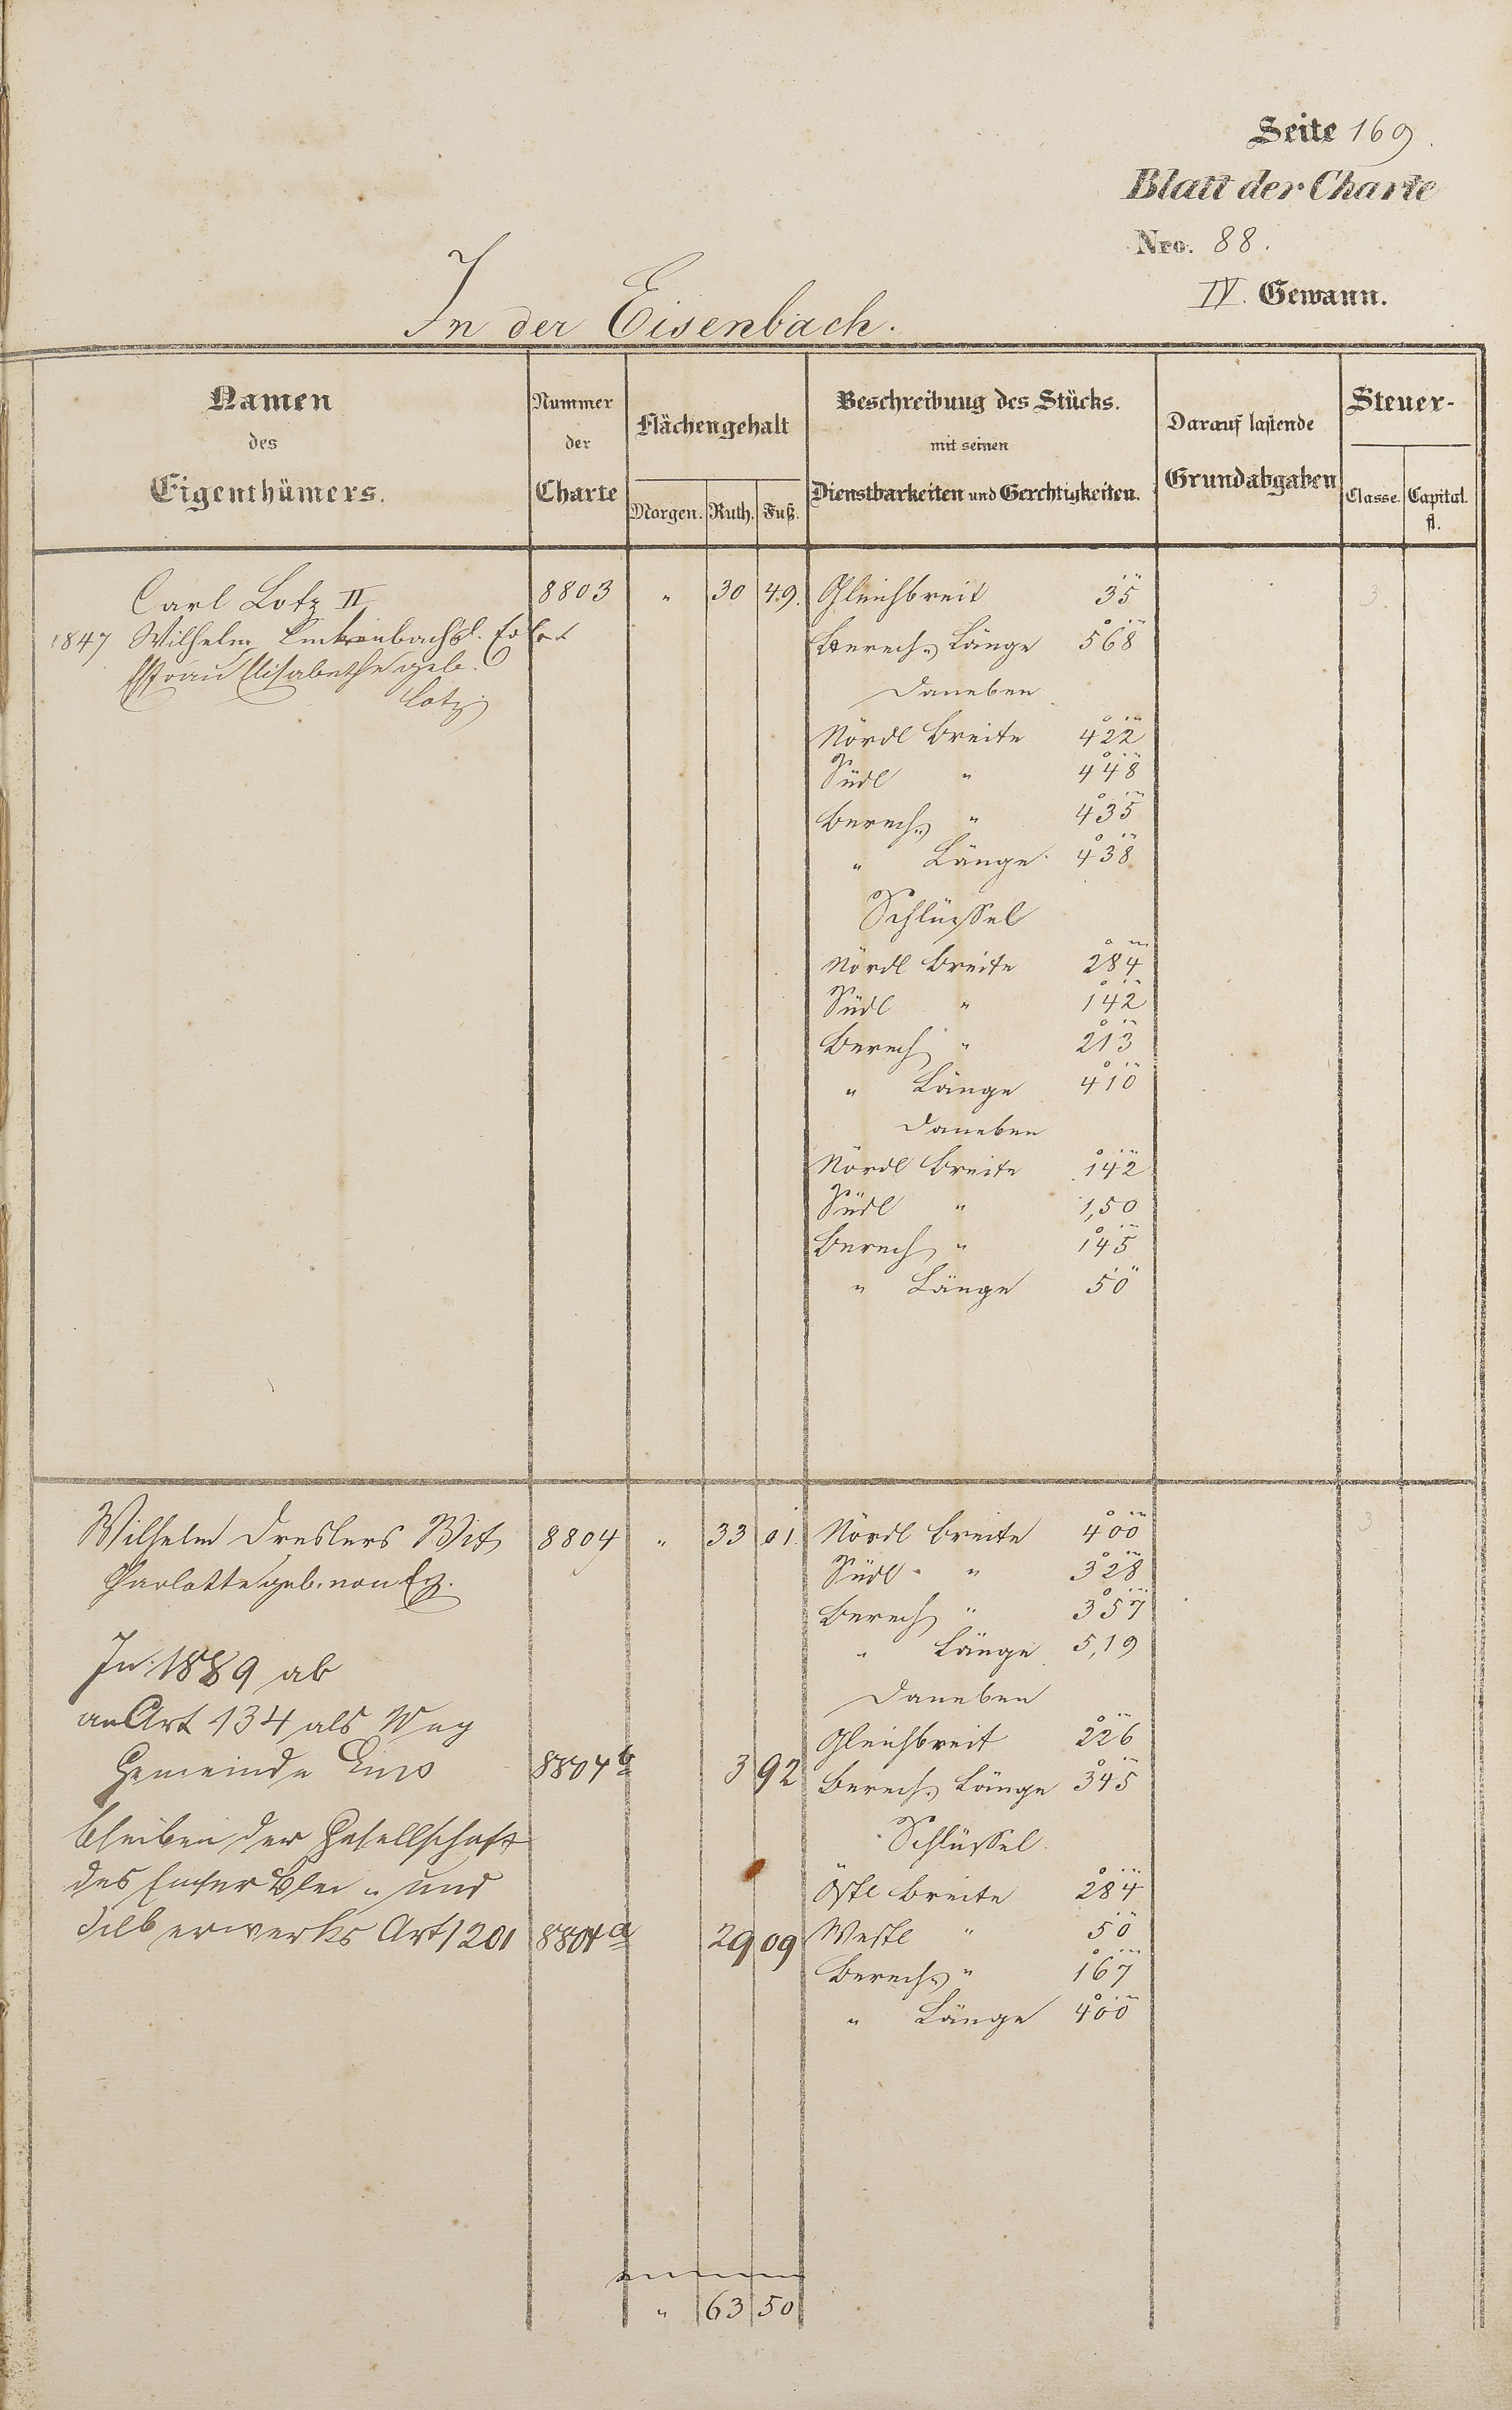 Seite 169.
Blatt der Charte
Nro. 88.
IV. Gewann.
In der Eisenbach.
Namen des Eigenthümers.
Nummer der Charte
Flächengehalt
Morgen. Ruth. Fuß.
Beschreibung des Stücks.
mit seinen
Dienstbarkeiten und Gerechtigkeiten.
Darauf lastende
Grundabgaben
Steuer-
Classe. Capital. fl.
Carl Lotz II 8803 " 30 49. Gleichbreit 35 3.
1847 Wilhelm
Frau Elisabethe geb.
Lotz
Berech. Länge 568
Daneben
Nördl Breite 422
Südl " 448
Berech. " 435
" Länge 438
Schlüssel
Nördl Breite 284
Südl " 142
Berech " 213
" Länge 410
Daneben
Nördl Breite 142
Südl " 1,50
Berech " 145
" Länge 50
Wilhelm Dreslers Wit 8804 " 33 01. Nördl Breite 400 3
Charlotte geb. von
Südl " 328
Berech " 357
" Länge 5,19
In 1889 ab
an Art 134 als Weg
Gemeinde Ems 8804b 3 92
Daneben
Gleichbreit 226
Berech. Länge 345
bleiben der Gesellschaft
des Emser Blei " und
Silberwerks Art 1201 8804a 29 09
Schlüssel
Östl Breite 284
Westl " 50
Berech. " 167
" Länge 400
" 63 50